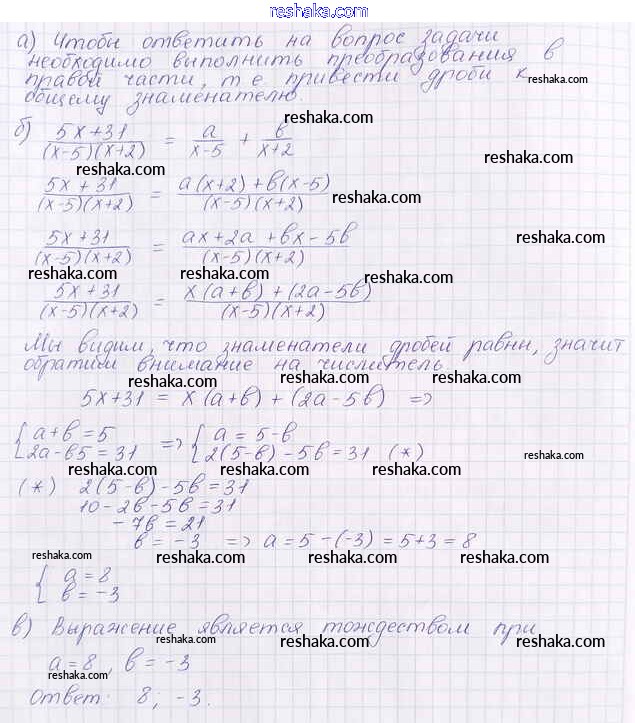 reshaka.com
а) Чтобы ответить на вопрос задачи
необходимо выполнить преобразования в
правой части, т.е. привести дроби к
общему знаменателю.
reshaka.com
reshaka.com
б) (5x+31)/((x-5)(x+2)) = a/(x-5) + b/(x+2)
reshaka.com
reshaka.com
(5x+31)/((x-5)(x+2)) = (a(x+2)+b(x-5))/((x-5)(x+2))
reshaka.com
reshaka.com
(5x+31)/((x-5)(x+2)) = (ax+2a+bx-5b)/((x-5)(x+2))
reshaka.com
reshaka.com
reshaka.com
reshaka.com
(5x+31)/((x-5)(x+2)) = (x(a+b)+(2a-5b))/((x-5)(x+2))
reshaka.com
reshaka.com
reshaka.com
Мы видим, что знаменатели дробей равны, значит
обратим внимание на числитель
reshaka.com
reshaka.com
reshaka.com
5x+31 = x(a+b) + (2a-5b) =>
reshaka.com
reshaka.com
reshaka.com
{ a+b=5 => { a=5-b
2a-b5=31 2(5-b)-5b=31 (*)
reshaka.com
reshaka.com
reshaka.com
reshaka.com
(*) 2(5-b)-5b=31
10-2b-5b=31
-7b=21
b=-3 => a=5-(-3)=5+3=8
reshaka.com
reshaka.com
reshaka.com
reshaka.com
{ a=8
b=-3
reshaka.com
reshaka.com
reshaka.com
reshaka.com
в) Выражение является тождеством при
reshaka.com
reshaka.com
reshaka.com
a=8, b=-3
reshaka.com
Ответ: 8; -3.
reshaka.com
reshaka.com
reshaka.com